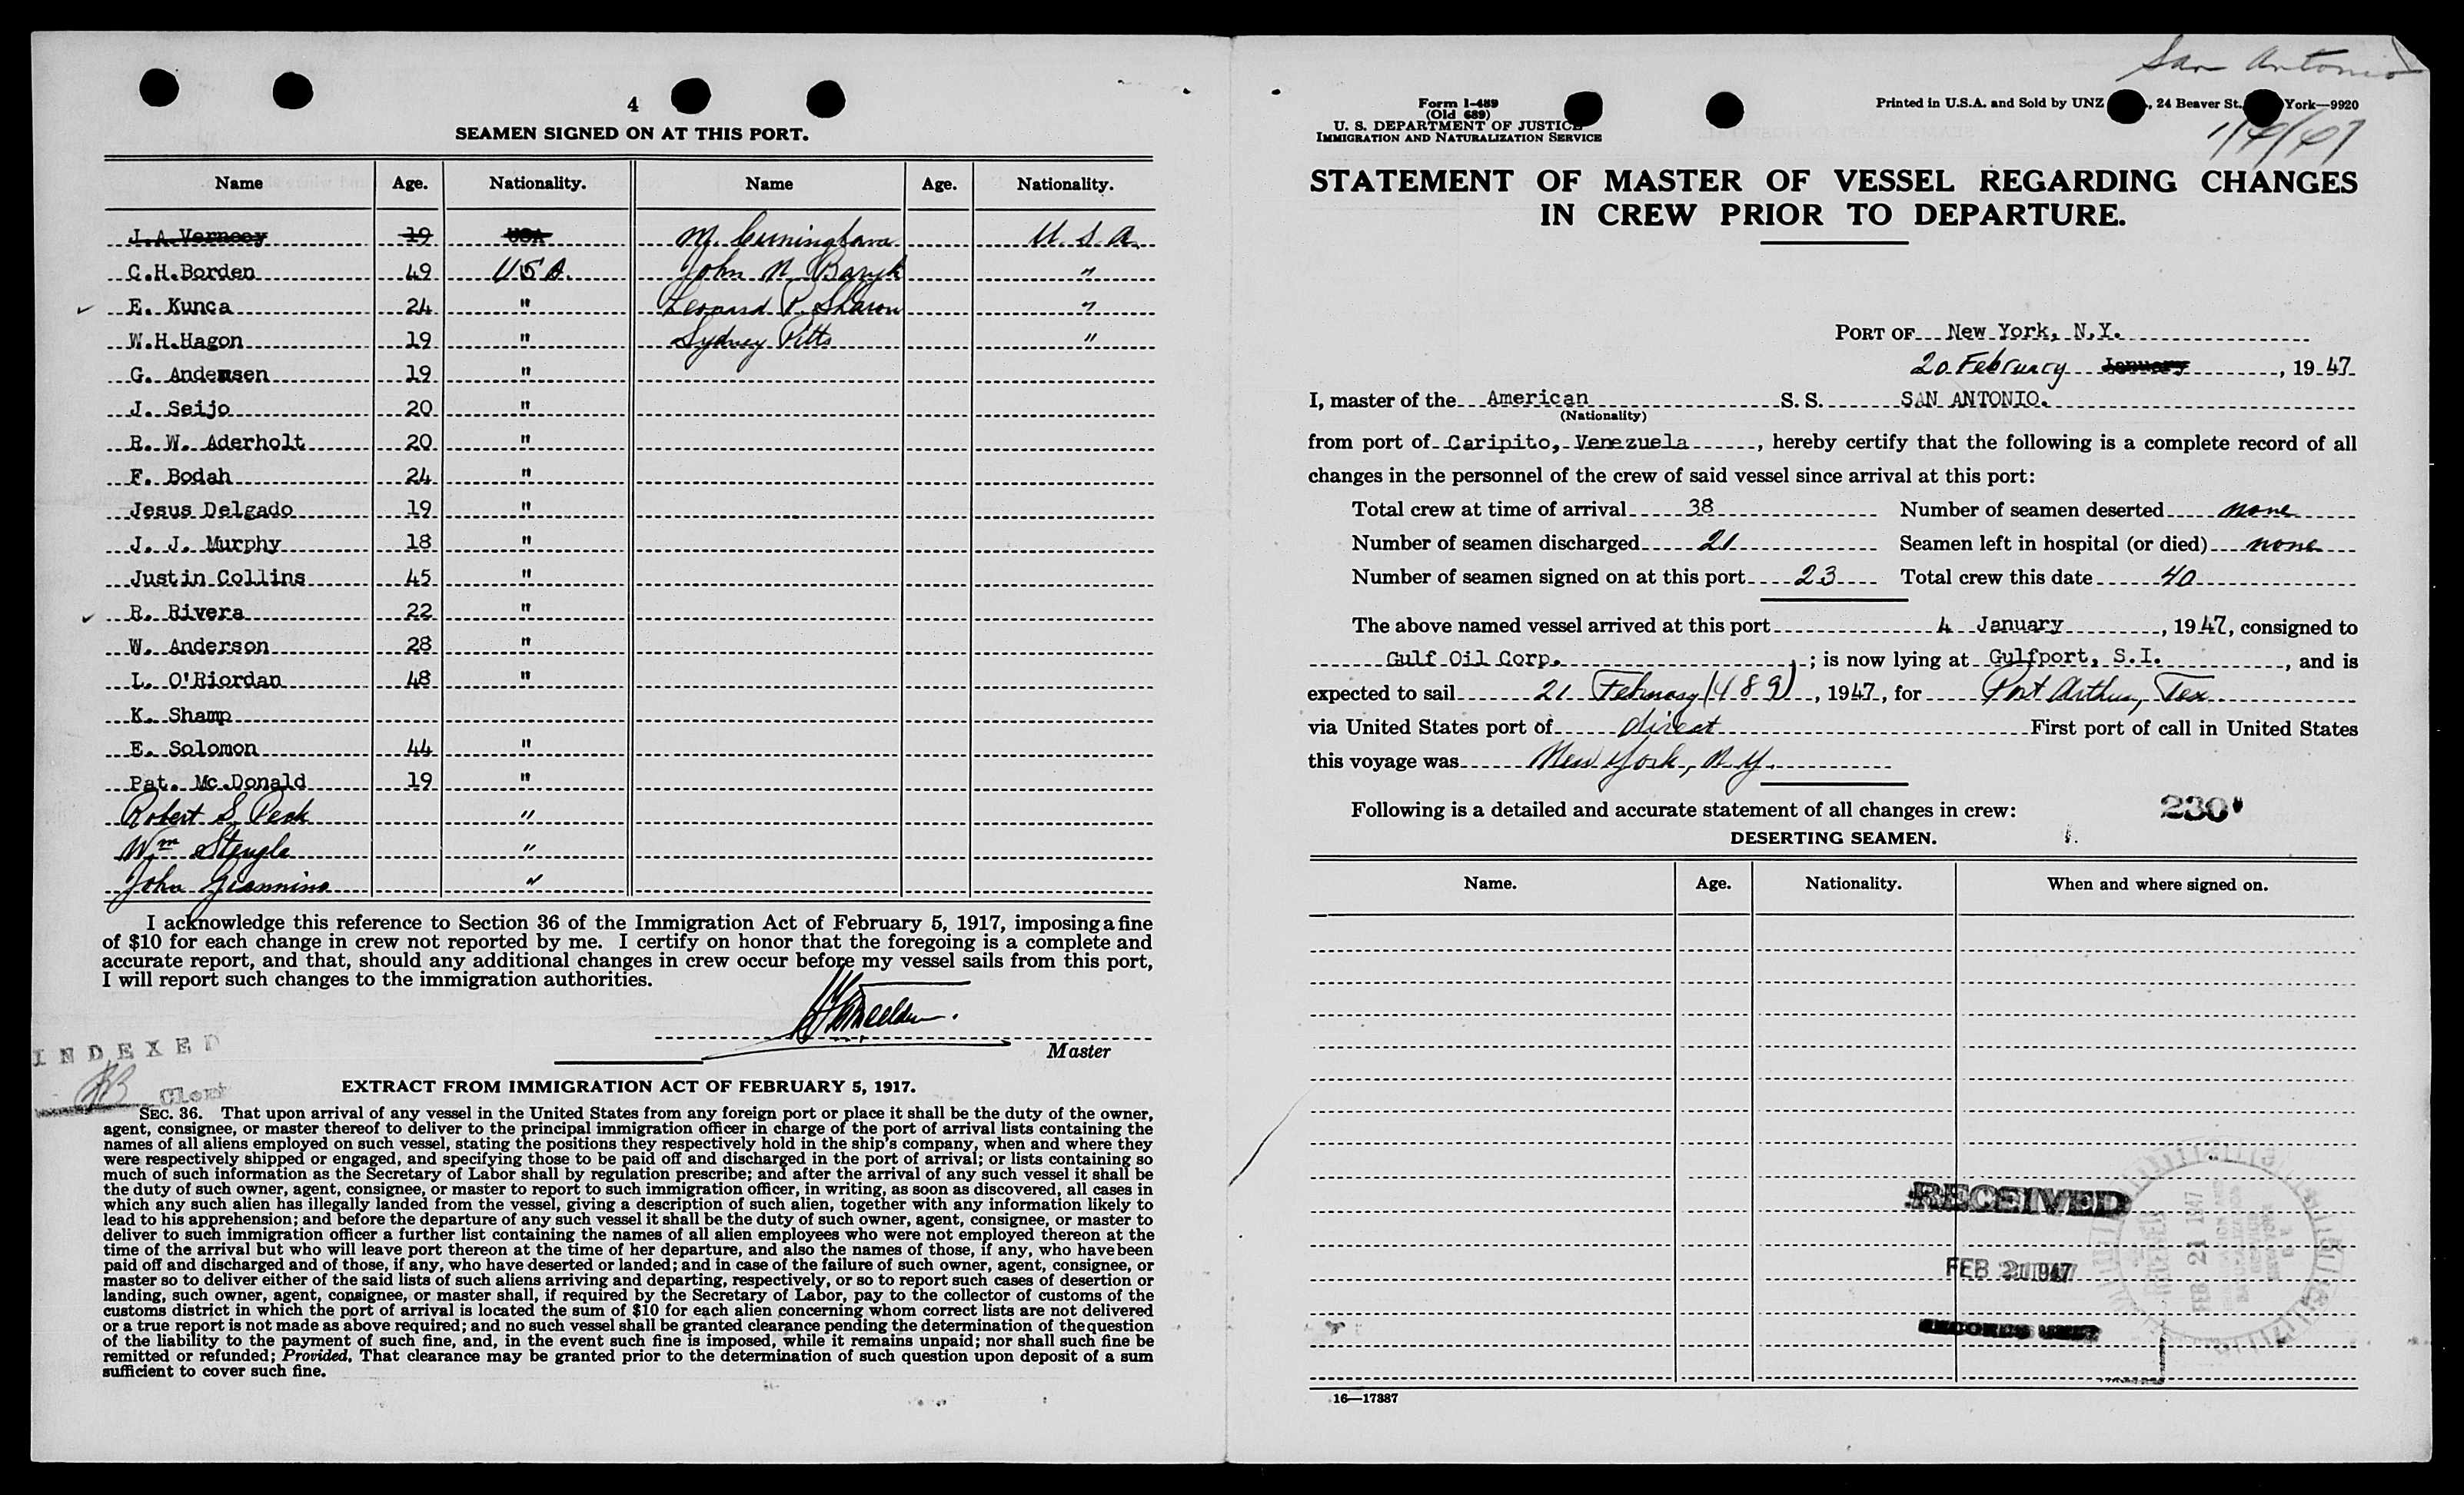 4
SEAMEN SIGNED ON AT THIS PORT.
Name Age. Nationality. Name Age. Nationality.
J.A.Verneey 19 USA M. Cuningham U.S.A.
C.H.Borden 49 USA. John N. Banyk "
E. Kunca 24 " Leonard P. Sharow "
W.H.Hagon 19 " Sydney Pitts "
G. Andersen 19 "
J. Seijo 20 "
R. W. Aderholt 20 "
F. Bodah 24 "
Jesus Delgado 19 "
J. J. Murphy 18 "
Justin Collins 45 "
R. Rivera 22 "
W. Anderson 28 "
L. O'Riordan 48 "
K. Shamp
E. Solomon 44 "
Pat. Mc.Donald 19 "
Robert S. Pesk "
Wm Stengle "
John Giannino "
I acknowledge this reference to Section 36 of the Immigration Act of February 5, 1917, imposing a fine
of $10 for each change in crew not reported by me. I certify on honor that the foregoing is a complete and
accurate report, and that, should any additional changes in crew occur before my vessel sails from this port,
I will report such changes to the immigration authorities.
Master
INDEXED
Clerk
EXTRACT FROM IMMIGRATION ACT OF FEBRUARY 5, 1917.
SEC. 36. That upon arrival of any vessel in the United States from any foreign port or place it shall be the duty of the owner,
agent, consignee, or master thereof to deliver to the principal immigration officer in charge of the port of arrival lists containing the
names of all aliens employed on such vessel, stating the positions they respectively hold in the ship's company, when and where they
were respectively shipped or engaged, and specifying those to be paid off and discharged in the port of arrival; or lists containing so
much of such information as the Secretary of Labor shall by regulation prescribe; and after the arrival of any such vessel it shall be
the duty of such owner, agent, consignee, or master to report to such immigration officer, in writing, as soon as discovered, all cases in
which any such alien has illegally landed from the vessel, giving a description of such alien, together with any information likely to
lead to his apprehension; and before the departure of any such vessel it shall be the duty of such owner, agent, consignee, or master to
deliver to such immigration officer a further list containing the names of all alien employees who were not employed thereon at the
time of the arrival but who will leave port thereon at the time of her departure, and also the names of those, if any, who have been
paid off and discharged and of those, if any, who have deserted or landed; and in case of the failure of such owner, agent, consignee, or
master so to deliver either of the said lists of such aliens arriving and departing, respectively, or so to report such cases of desertion or
landing, such owner, agent, consignee, or master shall, if required by the Secretary of Labor, pay to the collector of customs of the
customs district in which the port of arrival is located the sum of $10 for each alien concerning whom correct lists are not delivered
or a true report is not made as above required; and no such vessel shall be granted clearance pending the determination of the question
of the liability to the payment of such fine, and, in the event such fine is imposed, while it remains unpaid; nor shall such fine be
remitted or refunded; Provided, That clearance may be granted prior to the determination of such question upon deposit of a sum
sufficient to cover such fine.
San Antonio
Form I-489
(Old 689)
U. S. DEPARTMENT OF JUSTICE
IMMIGRATION AND NATURALIZATION SERVICE
Printed in U.S.A. and Sold by UNZ , 24 Beaver St., York—9920
1/4/47
STATEMENT OF MASTER OF VESSEL REGARDING CHANGES
IN CREW PRIOR TO DEPARTURE.
PORT OF New York, N.Y.
20 February January, 1947
I, master of the American S. S. SAN ANTONIO.
(Nationality)
from port of Caripito, Venezuela, hereby certify that the following is a complete record of all
changes in the personnel of the crew of said vessel since arrival at this port:
Total crew at time of arrival 38 Number of seamen deserted none
Number of seamen discharged 21 Seamen left in hospital (or died) none
Number of seamen signed on at this port 23 Total crew this date 40
The above named vessel arrived at this port 4 January, 1947, consigned to
Gulf Oil Corp.; is now lying at Gulfport, S.I., and is
expected to sail 21 February (489), 1947, for Port Arthur, Tex
via United States port of direct First port of call in United States
this voyage was New York, N.Y.
Following is a detailed and accurate statement of all changes in crew: 230
DESERTING SEAMEN.
Name. Age. Nationality. When and where signed on.
RECEIVED
FEB 21 1947
FEB 21 1947
RECORDS UNIT
16—17887